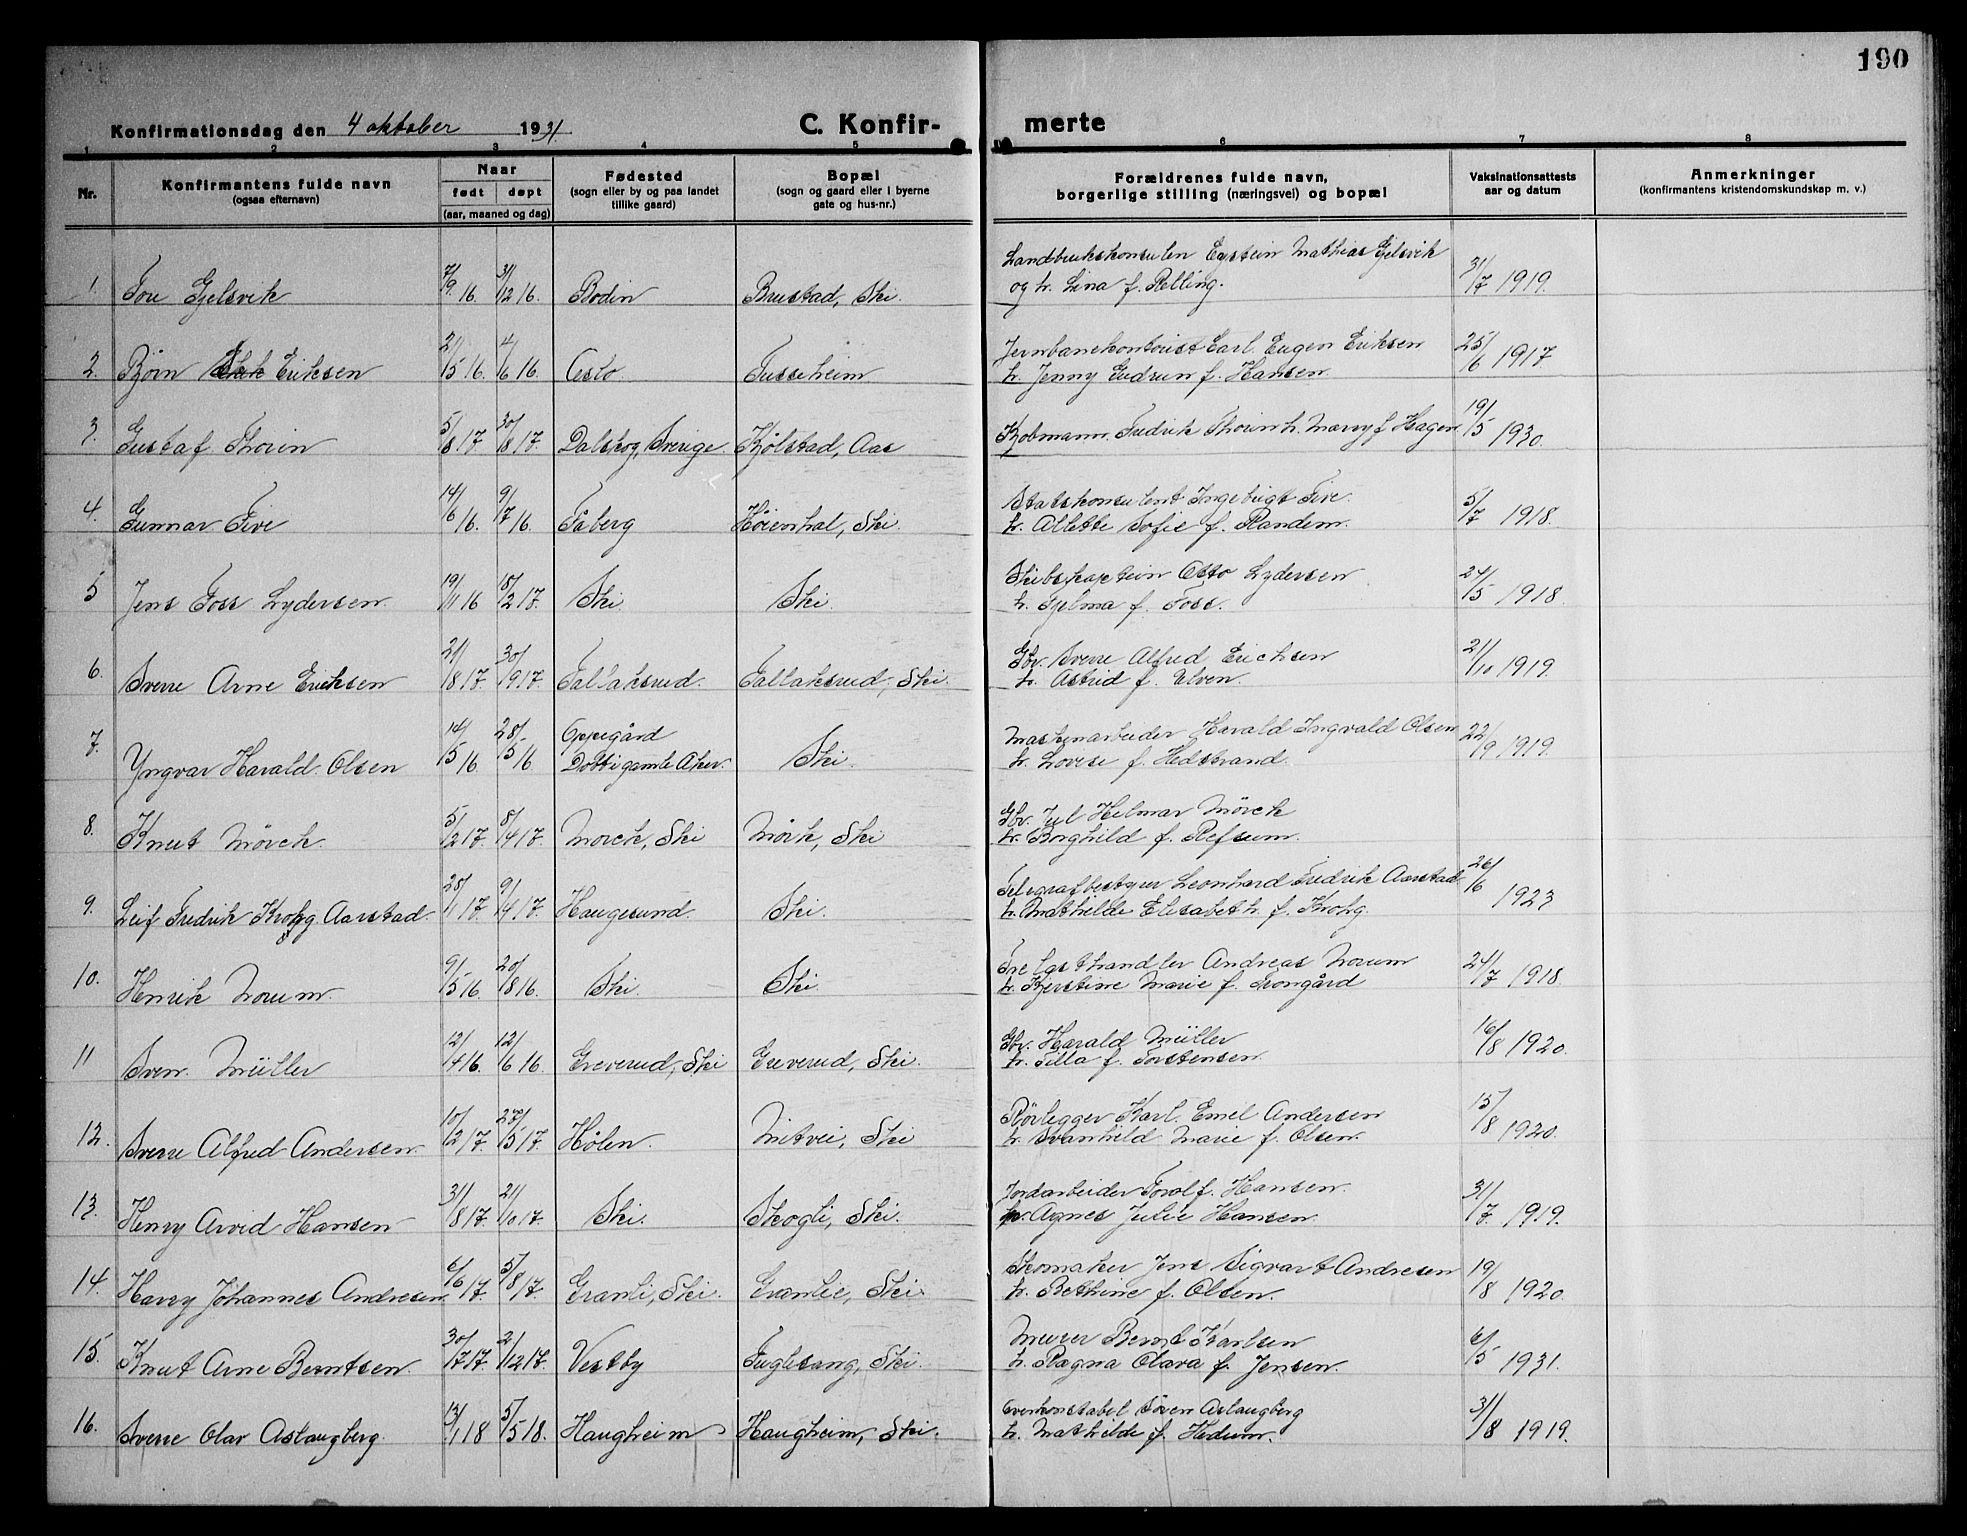 190
Konfirmationsdag den 4 oktober 1931. C. Konfir- merte
1 2 3 4 5 6 7 8
Nr. Konfirmantens fulde navn (ogsaa efternavn) Naar født døpt (aar, maaned og dag) Fødested (sogn eller by og paa landet tillike gaard) Bopæl (sogn og gaard eller i byerne gate og hus-nr.) Forældrenes fulde navn, borgerlige stilling (næringsvei) og bopæl Vaksinationsattests aar og datum Anmerkninger (konfirmantens kristendomskundskap m. v.)
Landbrukskonsulen Eystein Mathias Gjelsvik
1. Tore Gjelsvik 7/9 16. 31/12 16. Bodin Brustad, Ski. og h. Lina f. Relling. 31/7 1919.
Jernbanekontorist Carl Eugen Eriksen
2. Bjørn Eriksen 21/5 16. 4/6 16. Oslo. Tusseheim h. Jenny Gudrun f. Hansen. 25/6 1917
3. Gustaf Thorin 5/8 17 30/8 17. Dalskog, Sverige. Kjølstad, Aas Kjøbmann Fredrik Thorin h. Marry f Hagen 19/5 1930.
Statskonsulent Ingebrigt Five.
4. Gunnar Five 14/6 16. 9/7 16. Fåberg Høienhal, Ski. h. Allette Sofie f. Randem. 5/7 1918.
Skibskaptein Otto Lydersen
5 Jens Foss Lydersen. 19/11 16 18/2 17. Ski. Ski. h. Hjelma f. Foss. 24/5 1918.
Gbr. Sverre Alfred Erichsen
6. Sverre Arne Eriksen 21/8 17. 30/9 17. Tallaksrud. Tallaksrud, Ski. h. Astrid f. Elven. 21/10 1919.
Oppegård Maskinarbeider Harald Ingvald Olsen
7. Yngvar Harald Olsen 14/5 16. 28/5 16 Døtt i gamle Aker. Ski. h. Lovise f. Hedstrand. 22/9 1919.
Gbr. Jul Helmar Mörck
8. Knut Mörck. 5/2 17. 8/4 17. Morck, Ski Mörk, Ski h. Borghild f. Refsum.
Telegrafbestyrer Leonhard Fredrik Aarstad
9. Leif Fredrik Krohg Aarstad. 28/1 17. 9/4 17. Haugesund. Ski. h. Mathilde Elisabeth f. Krohg. 26/6 1923
Trelasthandler Andreas Norum
10. Henrik Norum. 9/5 16. 20/8 16. Ski. Ski. h. Kjerstine Marie f. Trongård 24/7 1918.
Gbr. Harald Müller
11 Sven Müller 12/4 16. 12/6 16. Greverud, Ski Greverud, Ski. h. Tilla f. Torstensen. 16/8 1920.
Rørlegger Karl Emil Andersen
12. Sverre Alfred Andersen. 10/2 17. 27/5 17. Hølen. Mitvei, Ski h. Svanhild Marie f. Olsen. 15/8 1920.
Jordarbeider Torolf. Hansen.
13. Henry Arvid Hansen 31/8 17. 21/10 17. Ski. Skogli, Ski. h. Agnes Julie Hansen. 31/7 1919.
Skomaker Jens Sigvart Andresen
14. Harry Johannes Andresen. 6/6 17. 5/8 17. Granli, Ski. Granlie, Ski. h. Bethine f. Olsen. 19/8 1920.
Murer Bernt Karlsen
15. Knut Arne Berntsen. 30/7 17. 2/12 17. Vestby Fuglesang, Ski. h. Ragna Olava f. Jensen. 6/5 1931.
Overkonstabel Søren Aslaugberg
16. Sverre Olav Aslaugberg. 13/1 18 5/5 18. Haugheim Haugheim, Ski. h. Mathilde f. Hedum. 31/8 1919.